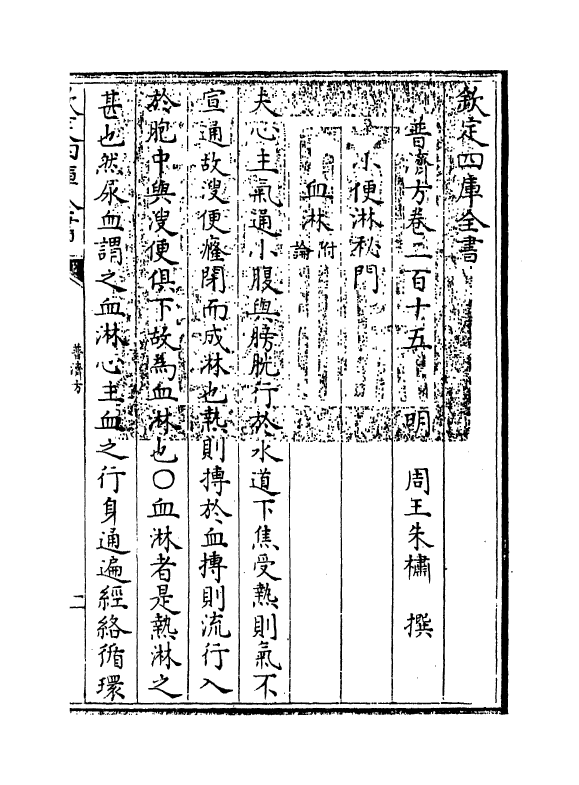 欽定四庫全書
普濟方卷二百十五 明 周王朱橚 撰
小便淋秘門
血淋附論
夫心主氣通小腹與膀胱行於水道下焦受熱則氣不
宣通故溲便癃閉而成淋也熱則搏於血搏則流行入
於胞中與溲便俱下故為血淋也〇血淋者是熱淋之
甚也然尿血謂之血淋心主血之行身通遍經絡循環
欽定四庫全書
普濟方